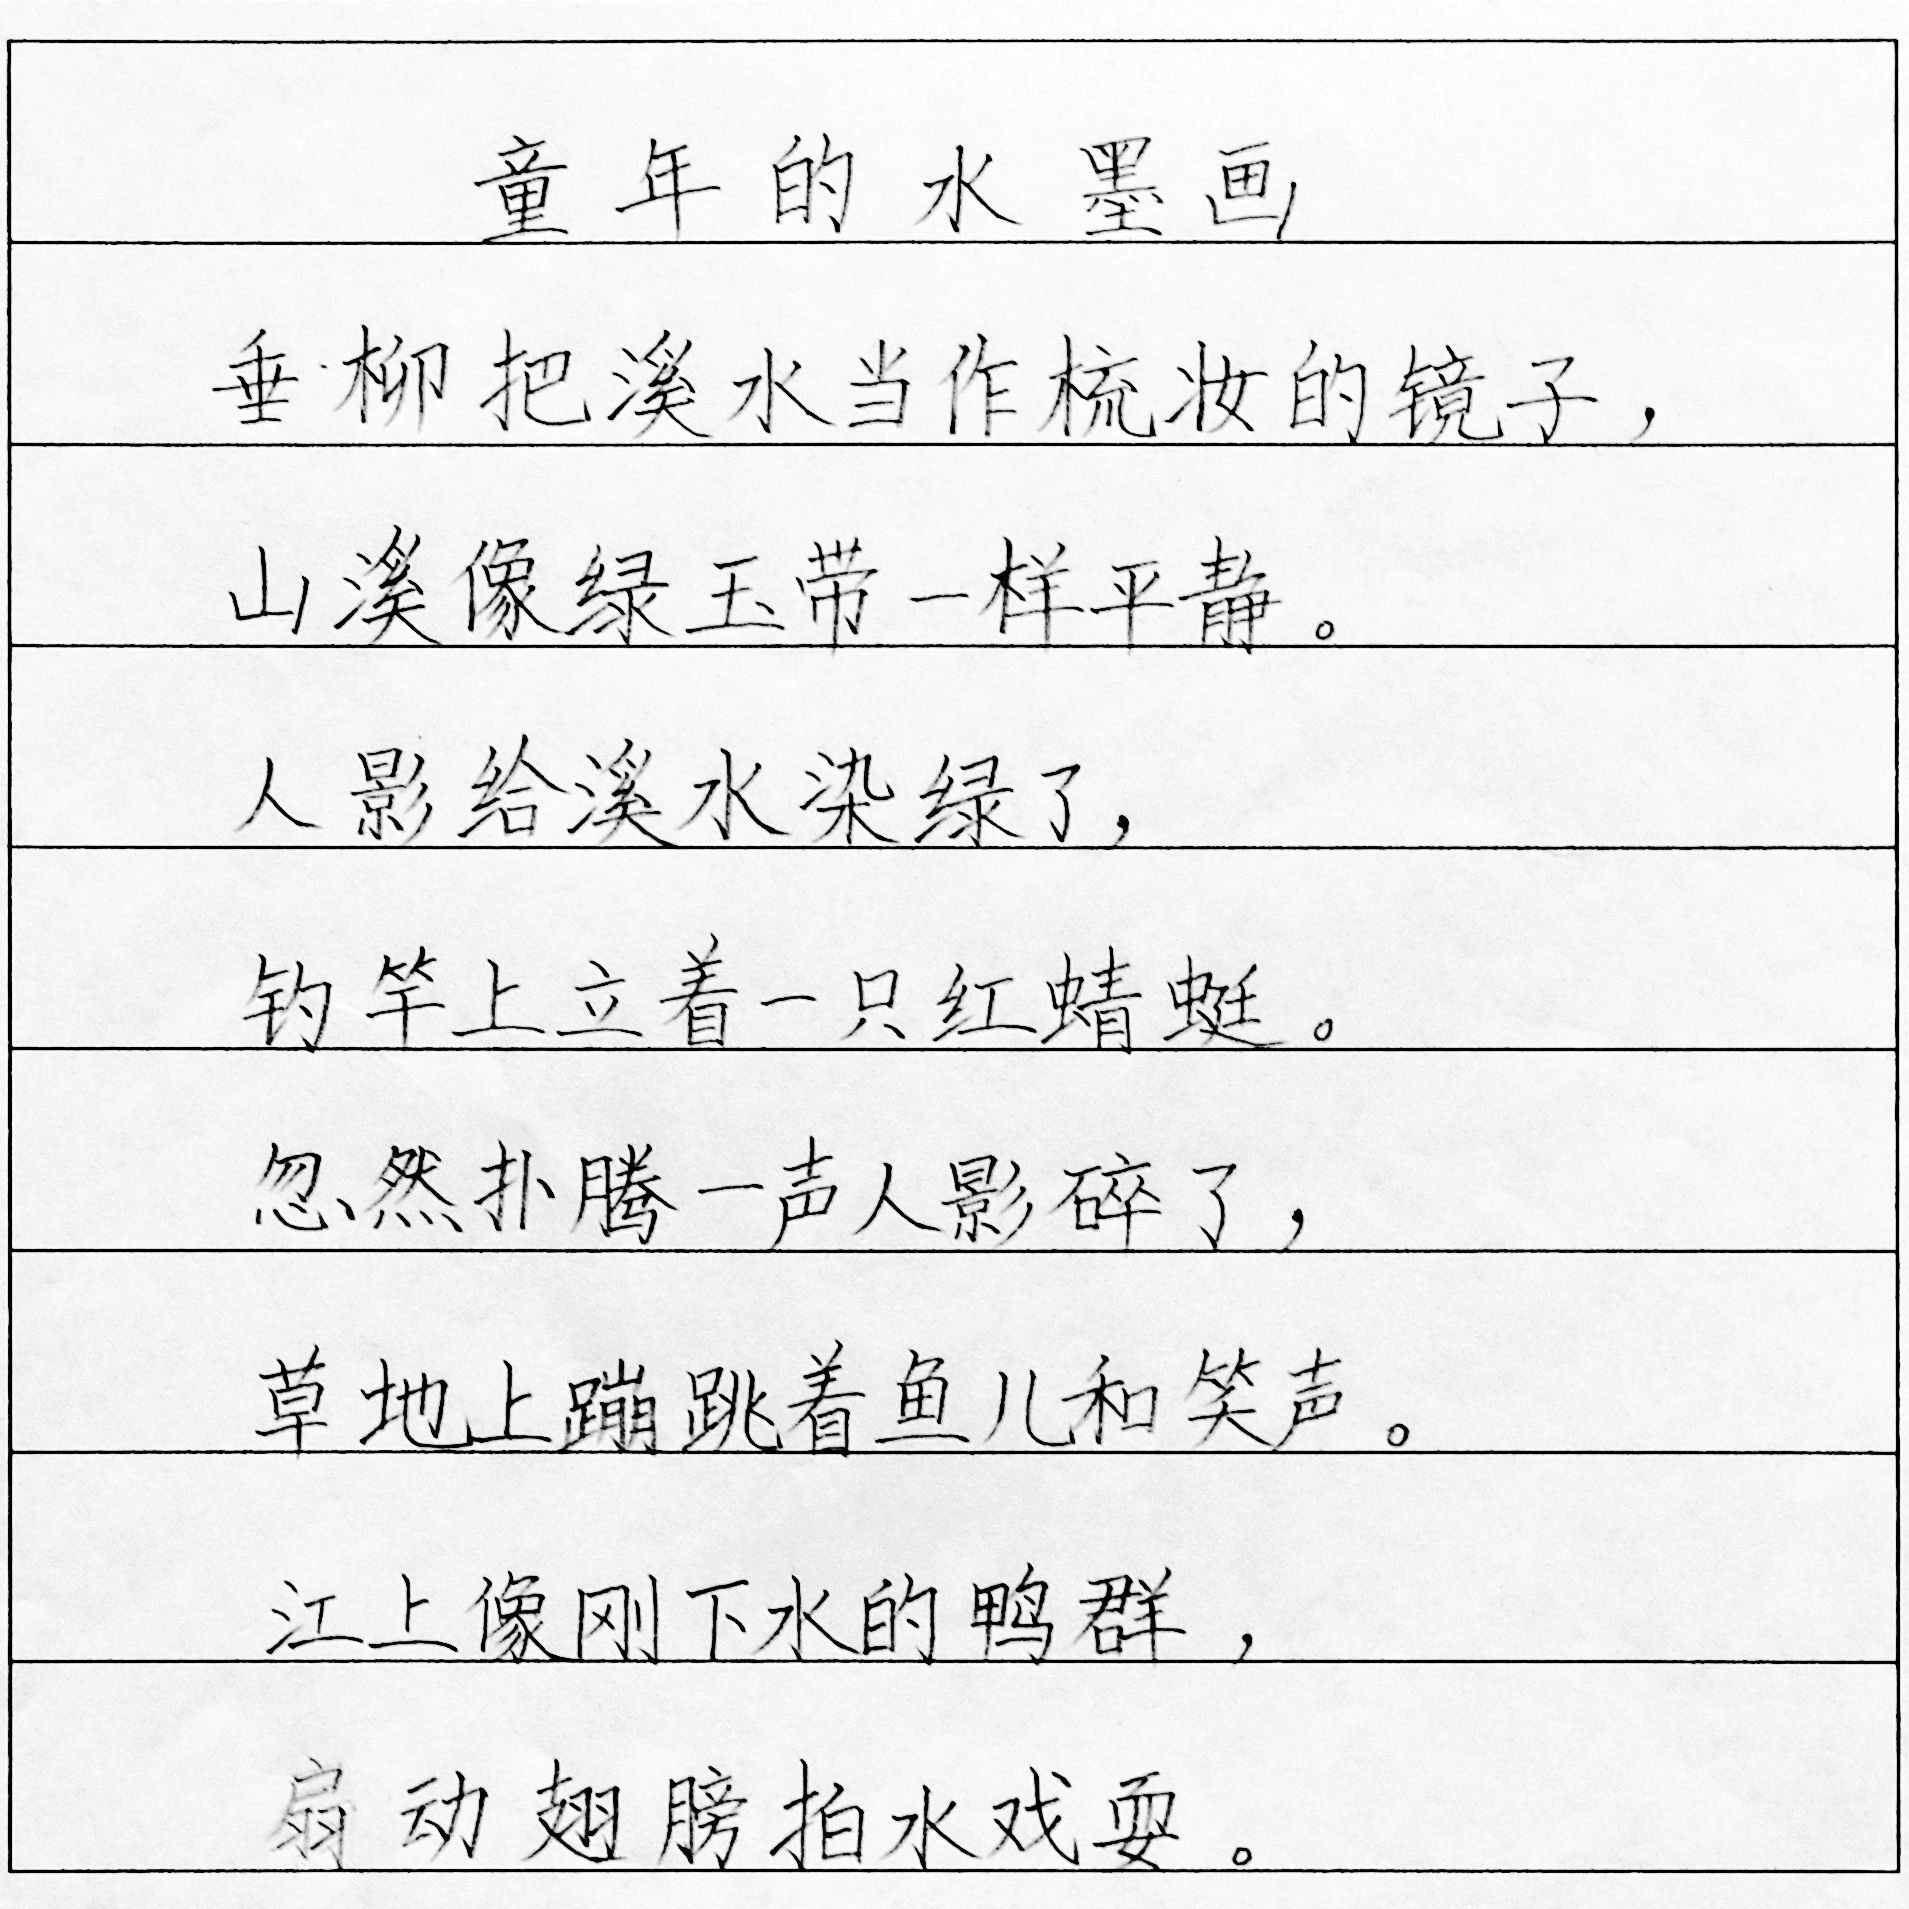 童年的水墨画
垂柳把溪水当作梳妆的镜子，
山溪像绿玉带一样平静。
人影给溪水染绿了，
钓竿上立着一只红蜻蜓。
忽然扑腾一声人影碎了，
草地上蹦跳着鱼儿和笑声。
江上像刚下水的鸭群，
扇动翅膀拍水戏耍。